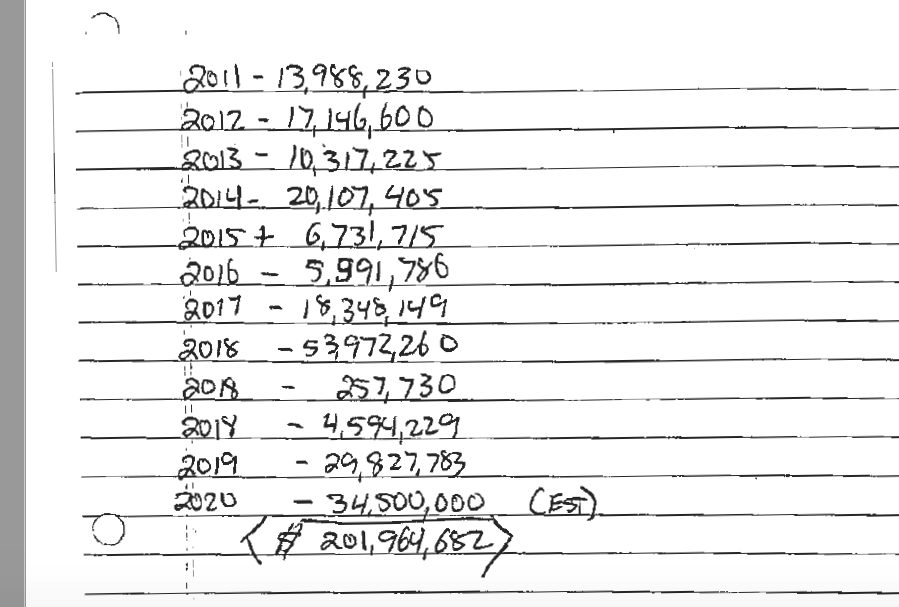 2011 - 13,988,230
2012 - 17,146,600
2013 - 10,317,225
2014 - 20,107,405
2015 + 6,731,715
2016 - 5,991,786
2017 - 18,348,149
2018 - 53,972,260
2018 - 257,730
2018 - 4,594,229
2019 - 29,827,783
2020 - 34,500,000 (EST)
<$ 201,964,682>